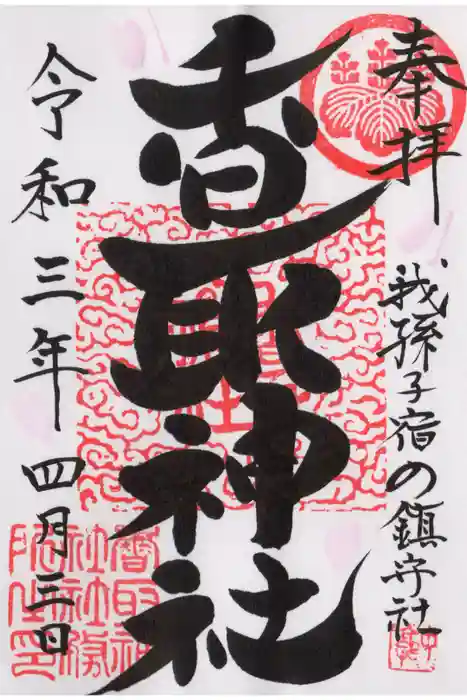 奉拝
我孫子宿の鎮守社
香取神社
令和三年四月三日